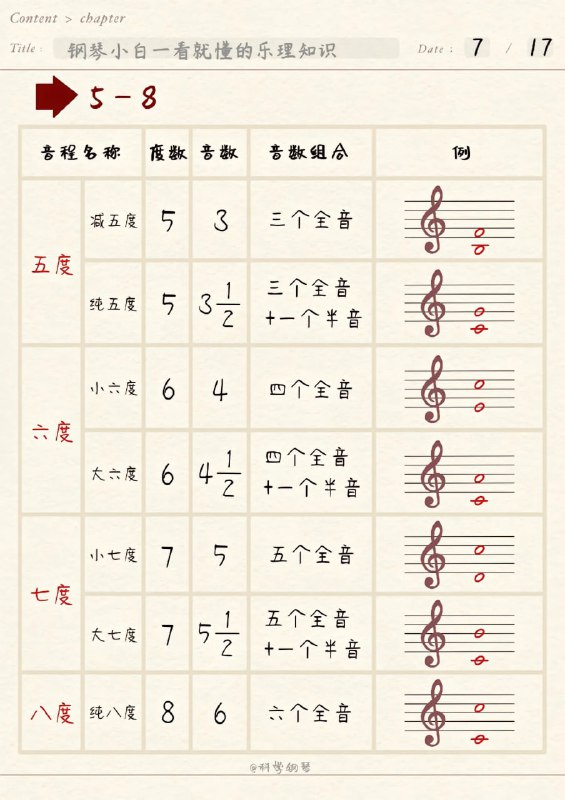 Content > chapter
Title : 钢琴小白一看就懂的乐理知识 Date : 7 / 17
5-8
音程名称 度数 音数 音数组合 例
五度
减五度 5 3 三个全音
纯五度 5 3 1/2 三个全音
+一个半音
六度
小六度 6 4 四个全音
大六度 6 4 1/2 四个全音
+一个半音
七度
小七度 7 5 五个全音
大七度 7 5 1/2 五个全音
+一个半音
八度 纯八度 8 6 六个全音
@科学钢琴